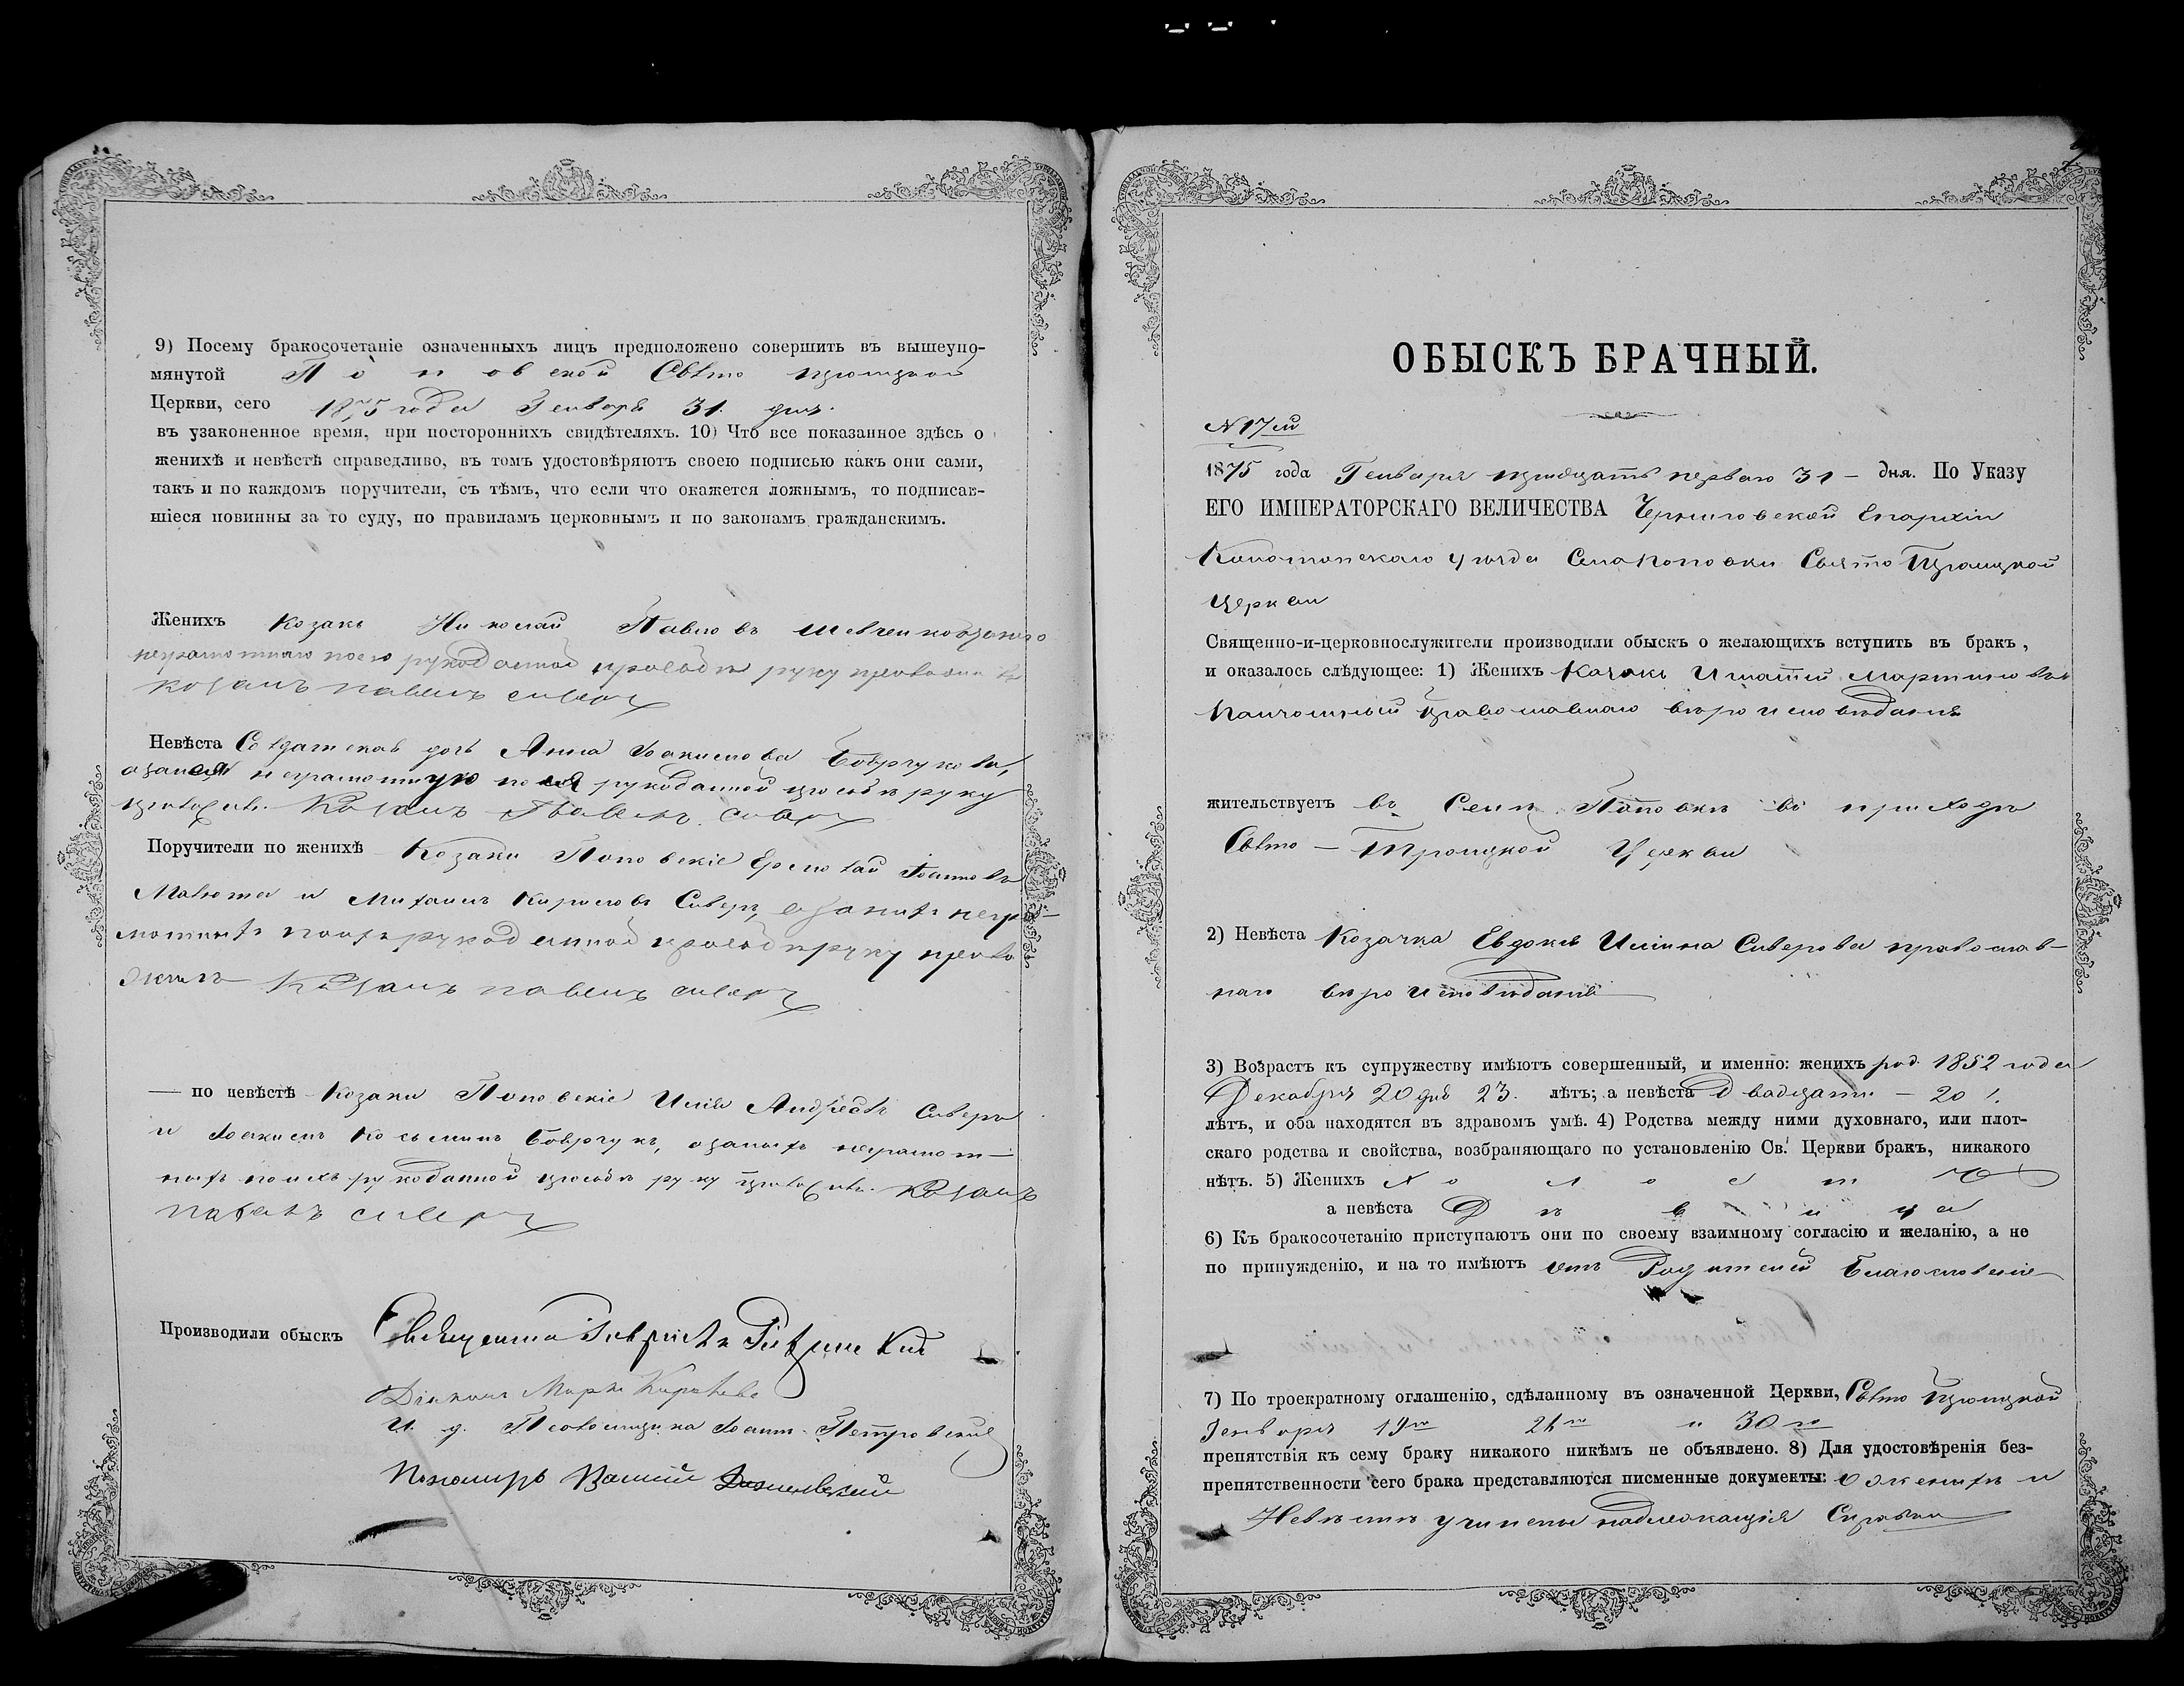 9) Посему бракосочетаніе означенныхъ лицъ предположено совершить въ вышеупо-
мянутой Поповской Свѣто Троицкой
Церкви, сего 1875 года Генваря 31. дня.
въ узаконенное время, при постороннихъ свидѣтеляхъ. 10) Что все показанное здѣсь о
женихѣ и невѣстѣ справедливо, въ томъ удостовѣряютъ своею подписью какъ они сами,
такъ и по каждомъ поручители, съ тѣмъ, что если что окажется ложнымъ, то подписав-
шіеся повинны за то суду, по правиламъ церковнымъ и по законамъ гражданскимъ.
Женихъ Козакъ Николай Павловъ Шевченко
неграмотнаго по его рукоданной прозбѣ руку приложилъ
козакъ павелъ сиверъ
Невѣста Солдатская дочь Анна Іоакимова
неграмотную по ея рукоданной прозбѣ руку
Козакъ Павелъ Сиверъ
Поручители по женихѣ Козаки Поповскіе Ермолай Іоанновъ
Малюта и Михаилъ Кириловъ Сиверъ, а за нихъ негра-
мотныхъ по ихъ рукоданной прозбѣ руку прило
жилъ Козакъ павелъ сиверъ
— по невѣстѣ Козаки Поповскіе Илія Андреевъ Сиверъ
и Іоакимъ Косьминъ а за ныхъ неграмот-
ныхъ по ихъ рукоданной прозбѣ руку Козакъ
павелъ сиверъ
Производили обыскъ Священникъ
Діаконъ Маркъ
И. д. Псаломщика Іоаннъ Петровскій
Пономарь
ОБЫСКЪ БРАЧНЫЙ.
N 17й
1875 года Генваря тридцать перваго 31 — дня. По Указу
ЕГО ИМПЕРАТОРСКАГО ВЕЛИЧЕСТВА Черниговской Епархіи
Конотопскаго уѣзда Села Поповки Свято Троицкой
Церкви
Священно-и-церковнослужители производили обыскъ о желающихъ вступить въ бракъ,
и оказалось слѣдующее: 1) Женихъ Козакъ Игнатій Мартиновъ
православнаго вѣроисповѣданія
жительствуетъ въ Селѣ Поповкѣ въ приходѣ
Свѣто — Троицкой Церкви
2) Невѣста Козачка Евдокія Иліина Сиверова православ-
наго вѣроисповѣданія
3) Возрастъ къ супружеству имѣютъ совершенный, и именно: женихъ род. 1852 года
Декабря 20 дня 23. лѣтъ; а невѣста Двадцати — 20 /.
лѣтъ, и оба находятся въ здравомъ умѣ. 4) Родства между ними духовнаго, или плот-
скаго родства и свойства, возбраняющаго по установленію Св. Церкви бракъ, никакого
нѣтъ. 5) Женихъ Холостъ
а невѣста Дѣвица
6) Къ бракосочетанію приступаютъ они по своему взаимному согласію и желанію, а не
по принужденію, и на то имѣютъ отъ Родителей Благословеніе
7) По троекратному оглашенію, сдѣланному въ означенной Церкви, Свѣто Троицкой
Генваря 19го 26го и 30го
препятствія къ сему браку никакого никѣмъ не объявлено. 8) Для удостовѣренія без-
препятственности сего брака представляются писменные документы: о женихѣ и
Невѣстѣ учинены надлежащія Справки